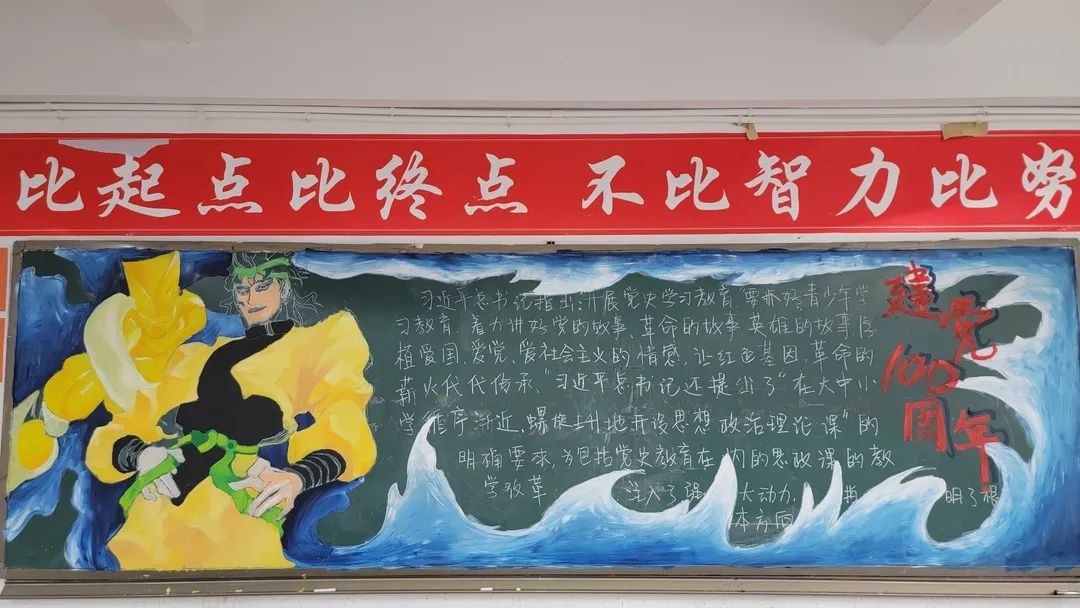 比起点比终点 不比智力比努
习近平总书记指出"开展党史学习教育,要亦好青少年学
习教育,着力讲好党的故事、革命的故事英雄的故事厚
植爱国、爱党、爱社会主义的情感,让红色基因、革命的
薪火代代传承。"习近平总书记还提出了"在大中小
学循序渐近、螺旋上升地开设思想政治理论课"的
明确要求,为包括党史教育在内的思政课的教
学改革 注入了强大动力, 指明了根
本方向
建党
100
周年